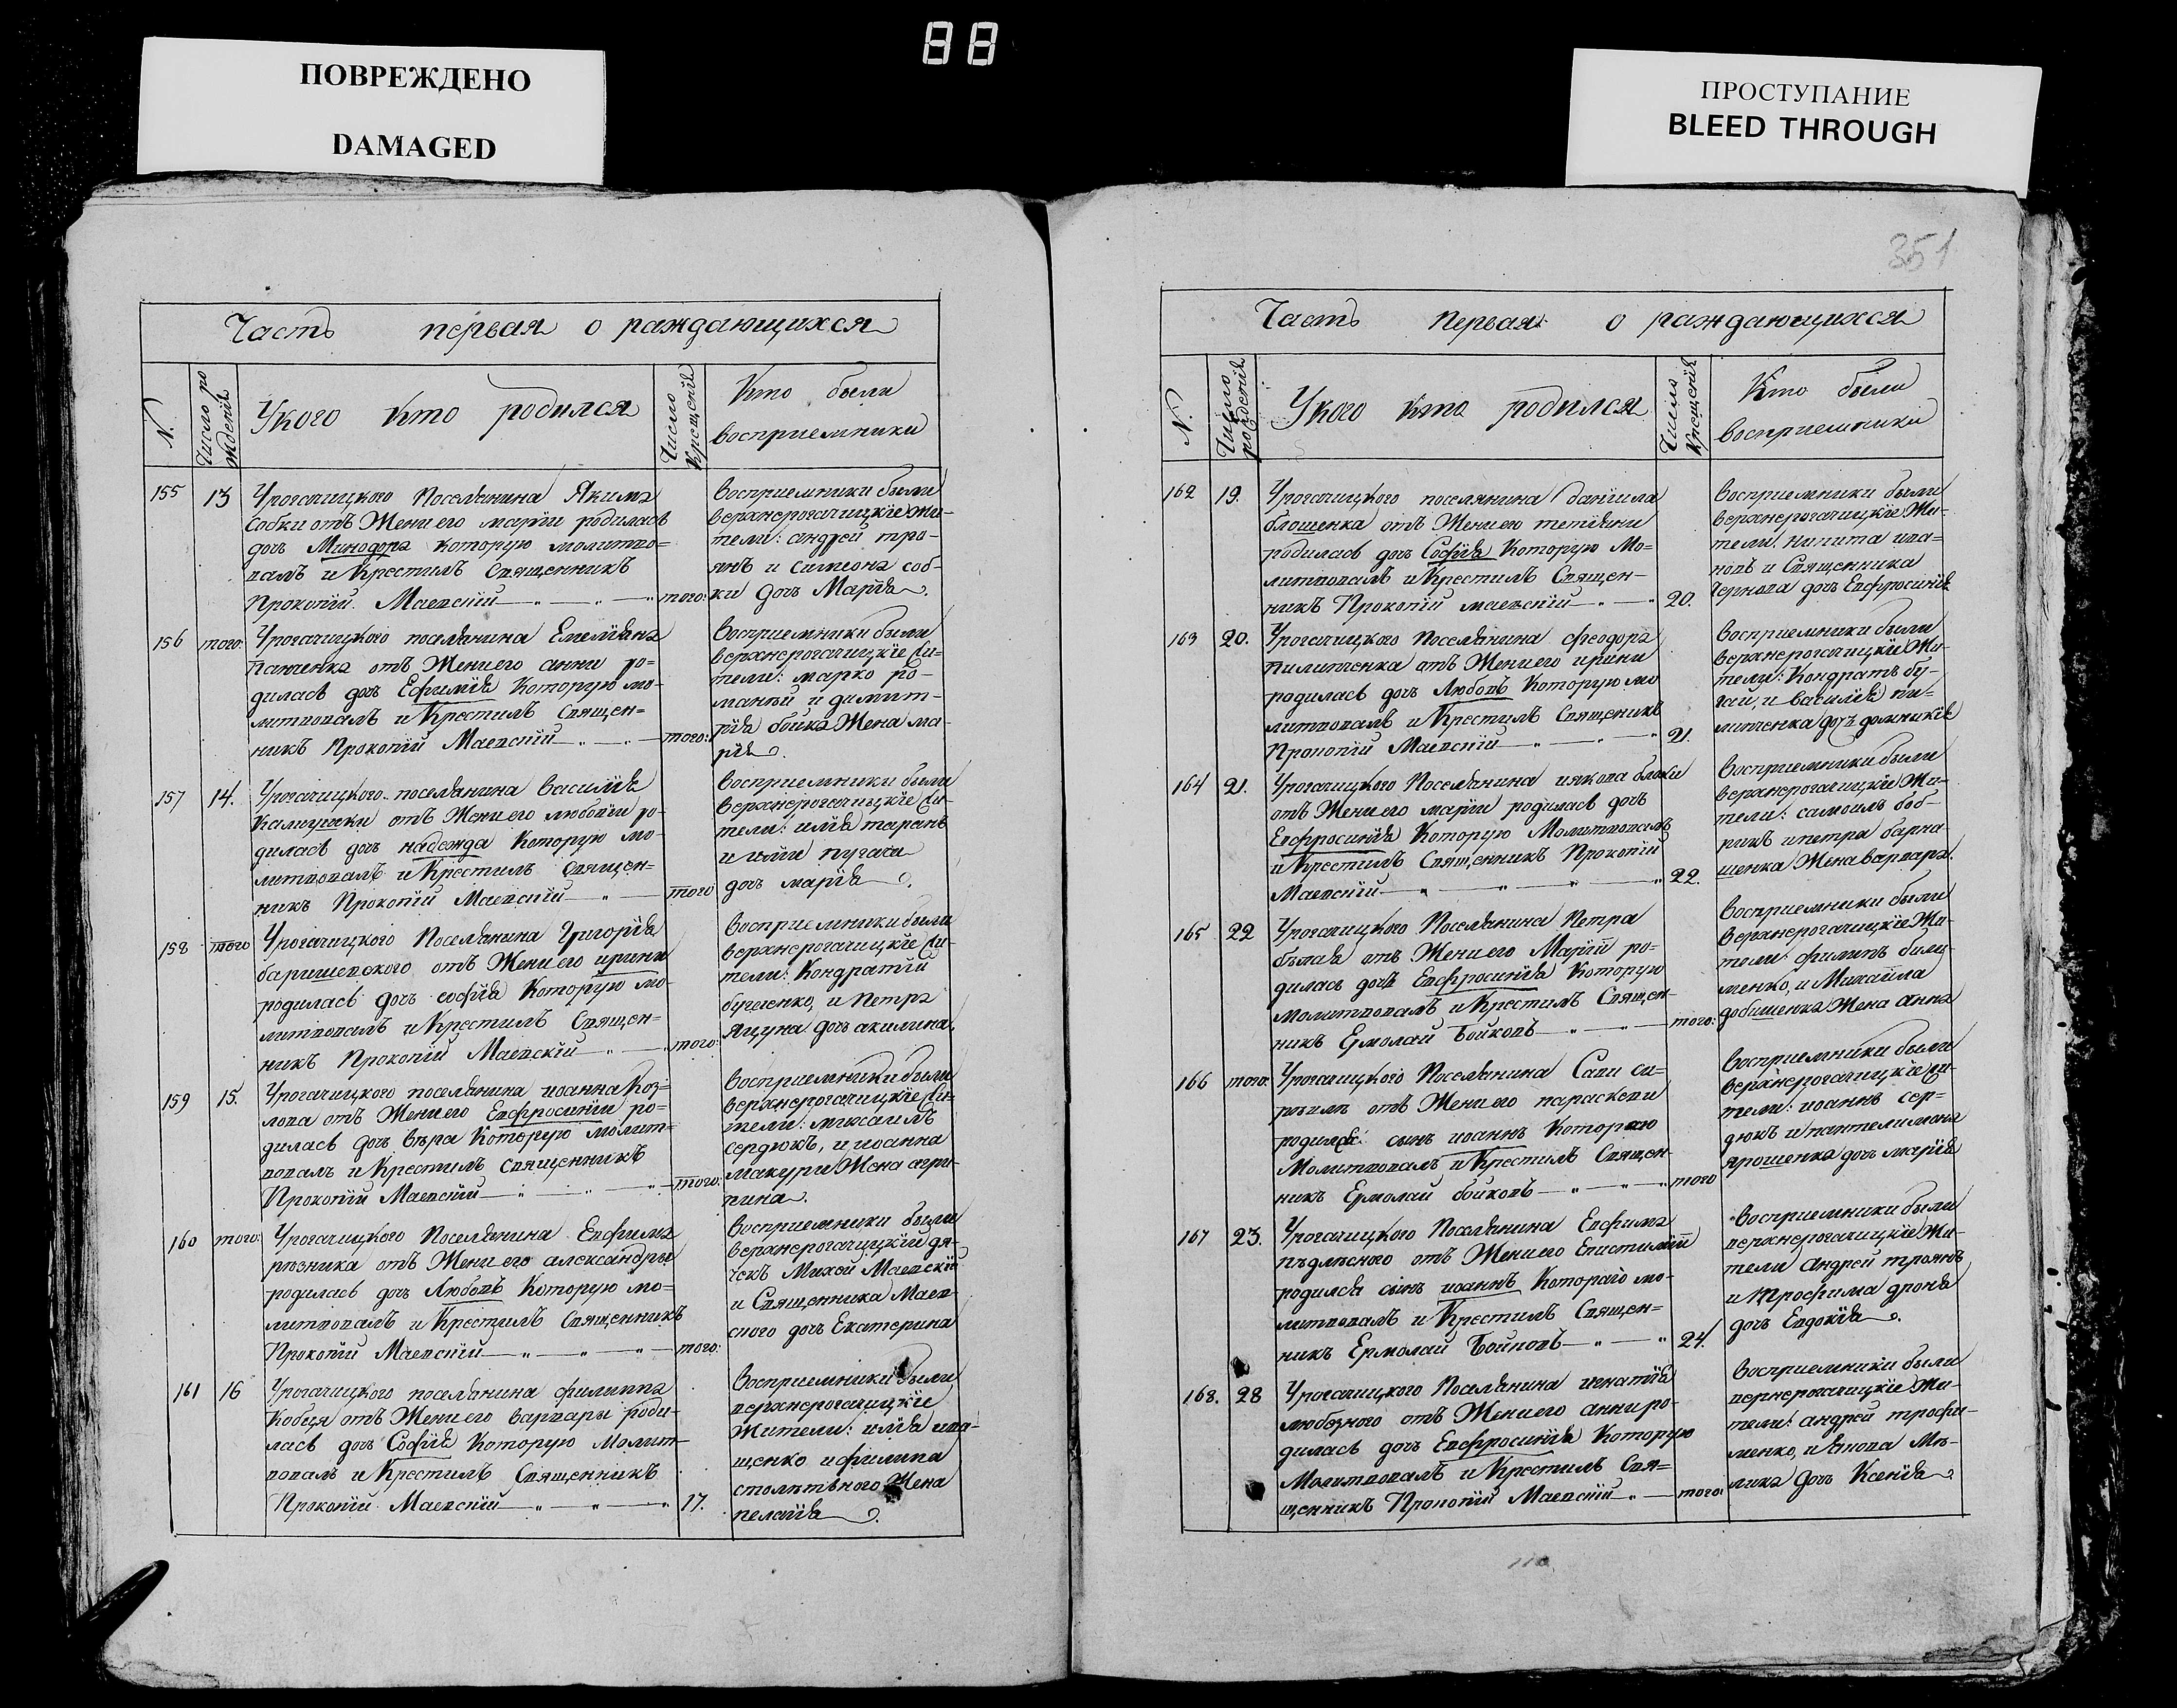 88
ПОВРЕЖДЕНО
DAMAGED
ПРОСТУПАНИЕ
BLEED THROUGH
Часть первая о раждающихся
N. Число рожденія Укого кто родился Число Крещенія Кто были восприемники
155 13 Урогачицкого Поселянина Якима
Собки отъ Жени его маріи родилась
дочь Минодора которую молитво=
валъ и Крестилъ Священникъ
Прокопій Маевскій того:
восприемники были
верхнерогачицкіе Жи-
тели: андрей тро-
янъ и симеона соб-
ки дочь Марія.
156 того: Урогачицкого поселянина Емеліяна
Панченка отъ Жени его анни ро=
дилась дочь Ефимія Которую мо-
литвовалъ и Крестилъ Священ=
никъ Прокопій Маевскій того:
восприемники были
верхнерогачицкіе Жи=
тели: марко ро-
маній и димит-
рія бойка Жена ма-
рія.
157 14. Урогачицкого поселянина василія
отъ Жени его любови ро-
дилась дочь надежда Которую мо-
литвовалъ и Крестилъ Священ=
никъ Прокопій Маевскій того
восприемники были
верхнерогачицкіе Жи-
тели: илія таранъ
и иліи пугача
дочь марія.
158 того Урогачицкого Поселянина Григорія
баришевского отъ Жени его ирини
родилась дочь софія Которую мо-
литвовалъ и Крестилъ Священ=
никъ Прокопій Маевскій того:
восприемники были
верхнерогачицкіе Жи-
тели: Кондратій
и Петра
Яцуна дочь акилина.
159 15. Урогачицкого поселянина иоанна Коз=
лова отъ Жени его Евфросиніи ро=
дилась дочь вѣра Которую молит=
вовалъ и Крестилъ священникъ
Прокопій Маевскій того:
восприемники были
верхнерогачицкіе Жи-
тели: михаилъ
сердюкъ, и иоанна
макури Жена агри-
пина.
160 того: Урогачицкого Поселянина Евфима
рѣзника отъ Жени его александры
родилась дочь Любовь Которую мо=
литвовалъ и Крестилъ Священникъ
Прокопій Маевскій того:
восприемники были
верхнерогачицкіи дя-
чекъ Михей Маевскій
и Священника Маев-
ского дочь Екатерина
161 16 Урогачицкого поселянина филиппа
Кобця отъ Жени его варвары роди-
лась дочь Софія Которую Молит-
вовалъ и Крестилъ Священникъ
Прокопій Маевскій 17.
восприемники были
верхнерогачицкіе
Жители: илія ива-
щенко и филипа
столѣтного Жена
пелагія.
351
Часть первая о раждающихся
N. Число рожденія Укого кто родился Число Крещенія Кто были восприемники
162 19. Урогачицкого поселянина даніила
блошенка отъ Жени его тетіяни
родилась дочь Софія Которую Мо=
литвовалъ и Крестилъ Священ-
никъ Прокопій маевскій 20.
восприемники были
верхнерогачицкіе Жи-
тели: никита ива-
новъ и Священника
Чернова дочь Евфросинія
163 20. Урогачицкого Поселянина феодора
пилипченка отъ Жени его ирини
родилась дочь Любовь Которую мо
литвовалъ и Крестилъ Священикъ
Прокопій Маевскій 21.
восприемники были
верхнерогачицкіе Жи-
тели: Кондратъ бу-
гай, и василія пи-
липченка дочь домникія
164 21. Урогачицкого Поселянина иякова
отъ Жени его маріи родилась дочь
Евфросинія Которую Молитвовалъ
и Крестилъ Священникъ Прокопій
Маевскій 22.
восприемники были
верхнерогачицкіе Жи-
тели: самоилъ боб-
рикъ и петра барна-
шенка Жена варвара.
165 22 Урогачицкого Поселянина Петра
бѣлая отъ Жени его Маріи ро=
дилась дочь Евфросинія Которую
Молитвовалъ и Крестилъ Священ-
никъ Ермолай Бойковъ того:
восприемники были
верхнерогачицкіе Жи-
тели: филипъ били-
менко, и Михаила
добишенка Жена анна
166 того: Урогачицкого Поселянина Сави си=
отъ Жени его параскеви
родился сынъ иоаннъ Которого
Молитвовалъ и Крестилъ Священ-
никъ Ермолай бойковъ того
восприемники были
верхнерогачицкіе Жи-
тели: иоаннъ сер=
дюкъ и пантелимона
ярошенка дочь марія
167 23. Урогачицкого Поселянина Евфима
отъ Жени его Епистиміи
родился сынъ иоаннъ Котораго мо-
литвовалъ и Крестилъ Священ=
никъ Ермолай Бойковъ 24.
восприемники были
верхнерогачицкіе Жи-
тели Андрей троянъ
и Трофима дроня
дочь Евдокія.
168. 28 Урогачицкого Поселянина игнатія
любязного отъ Жени его анни ро-
дилась дочь Евфросинія Которую
Молитвовалъ и Крестилъ Свя=
щенникъ Прокопій Маевскій того:
восприемники были
верхнерогачицкіе Жи-
тели: андрей трофи-
менко, и якова Мѣ-
лика дочь Ксенія.